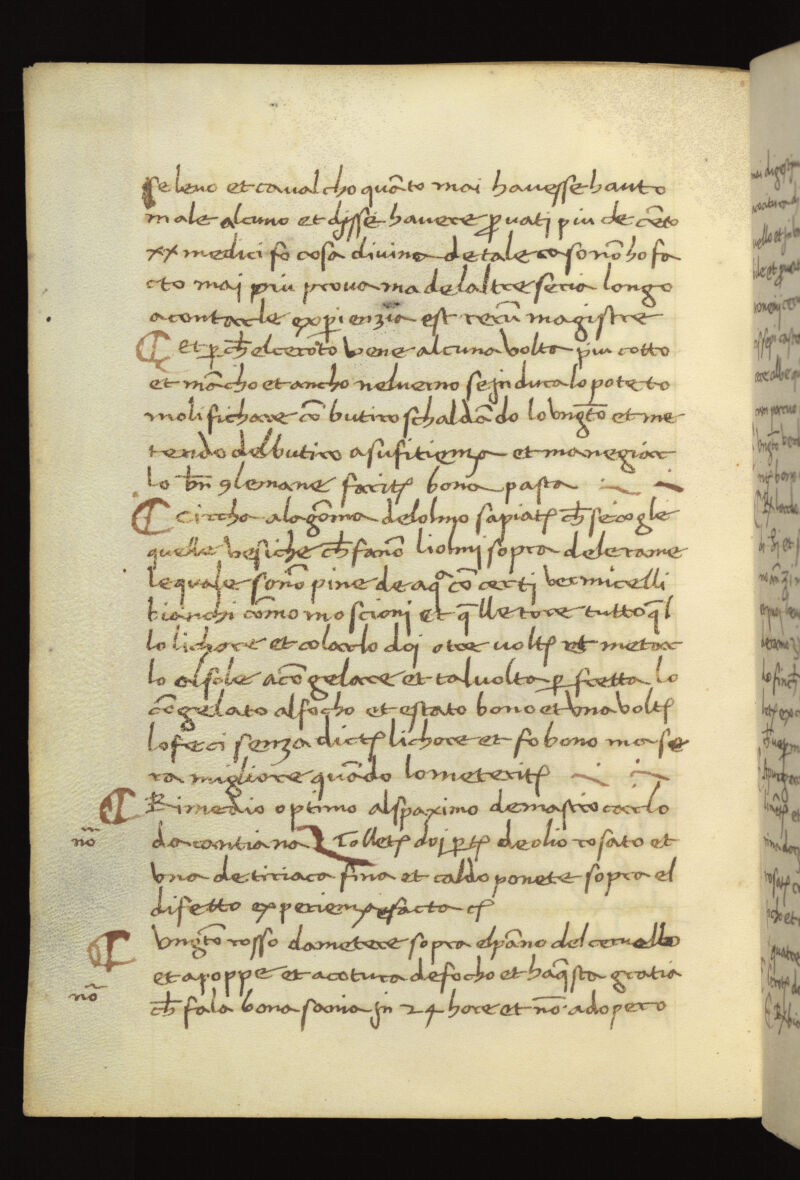 se levo et cavalcho quāto mai havesse hauto
male alcuno et disse havere ꝓvati piu de cēto
xx medici fo cosa divina de tale caso nō ho fa
cto mai piu prova ma del altre seria longo
acontarle exꝑienzia est rerū magistre
Et ꝑch̄ el ceroto vene alcuna volta piu cotto
et mācho et ancho nel verno se indura lo poteto
molifichare cō butiro schaldādo lo ungēto et me
tendo del butiro a sufitienza et manegiar
lo bn̄ ꝯ le mane facitꝭ bona pasta
Circha a la gōma del olmo sapiatꝭ ch̄ se cogle
quelle vesiche ch̄ fanō li olmi sopra de le rame
le quale sonō pine de aq̄ cō certi vermicelli
bianchi cōmo moscioni et q̄lle torre tutto q̄l
lo lichore et colarlo doi o tre voltꝭ et metar
lo al sole a cōgelare et tal volta ꝑ fretta lo
cōgelato al focho et e stato bono et una voltꝭ
lo feci senza dictꝭ lichore et fo bono ma se
ra migliore quādo lo meteritꝭ
Rimedio optimo al spaximo de mastro carlo
da cantiana Tolletꝭ doi ꝑtꝭ de olio rosato et
una de tiriaca fina et caldo ponete sopra el
difetto experienza facta
nō
Ungēto rosso da metere sopra el pāno del cervello
et a poppe et a cotura de focho et ha q̄sta gratia
ch̄ fa la bona sania in 24 hore et nō adopero
nō